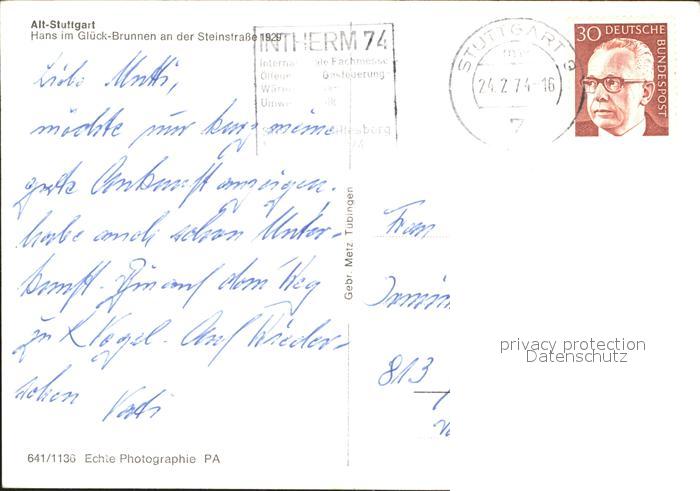 Alt-Stuttgart
Hans im Glück-Brunnen an der Steinstraße 1929
INTHERM 74
Fachmesse
STUTTGART
24.2.74-16
7
30 DEUTSCHE
BUNDESPOST
Liebe Mutti,
möchte nur kurz meine
gute Ankunft anzeigen.
habe auch schon Unter-
kunft. Bin auf dem Weg
zu Vogel. Auf Wieder-
sehen Vati
Gebr. Metz, Tübingen
Frau
813
privacy protection
Datenschutz
641/1136 Echte Photographie PA